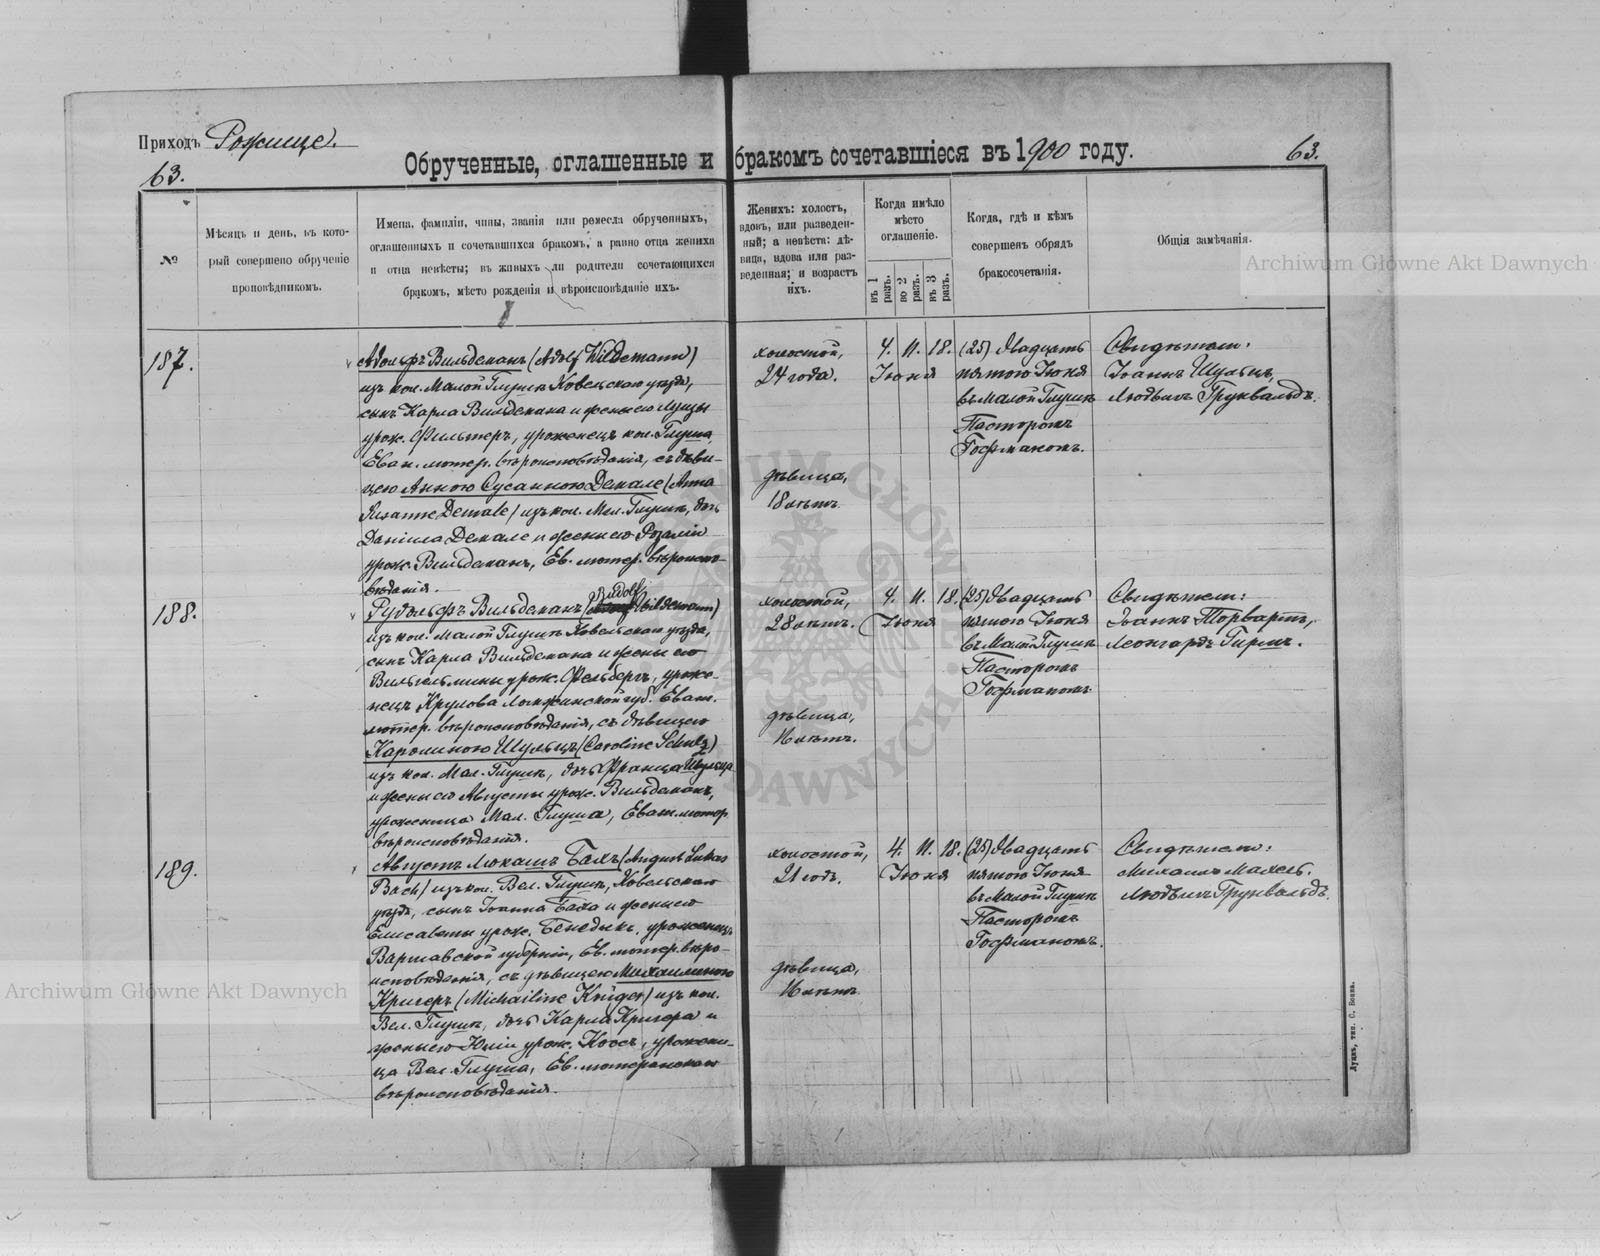 Приходъ Рожище.
63.
Обрученные, оглашенные и бракомъ сочетавшіеся въ 1900 году.
63.
№
Мѣсяцъ и день, въ кото-
рый совершено обрученіе
проповѣдникомъ.
Имена, фамиліи, чины, званія или ремесла обрученныхъ,
оглашенныхъ и сочетавшихся бракомъ, а равно отца жениха
и отца невѣсты; въ живыхъ ли родители сочетающихся
бракомъ, мѣсто рожденія и вѣроисповѣданіе ихъ.
Женихъ: холостъ,
вдовъ, или разведен-
ный; а невѣста: дѣ-
вица, вдова или раз-
веденная; и возрастъ
ихъ.
Когда имѣло
мѣсто
оглашеніе.
въ 1 разъ.
во 2 разъ.
въ 3 разъ.
Когда, гдѣ и кѣмъ
совершенъ обрядъ
бракосочетанія.
Общія замѣчанія.
187.
Адольфъ Вильдеманъ (Adolf Wildemann)
изъ кол. Малой Глушѣ Ковельскаго уѣзда,
сынъ Карла Вильдемана и жены его Луизы
урож. Фильтеръ, уроженецъ кол. Глуша,
Еван. лютер. вѣроисповѣданія, съ дѣви-
цею Анною Сусанною Демале (Anna
Susanne Demale) изъ кол. Мал. Глушѣ, дочь
Даніила Демале и жены его Розаліи
урож. Вильдеманъ, Ев. лютер. вѣроиспо-
вѣданія.
холостой,
24 года.
дѣвица,
18 лѣтъ.
4. 11. 18.
Іюня
(25) Двадцать
пятого Іюня
въ Малой Глушѣ
Пасторомъ
Гофманомъ.
Свидѣтели:
Іоаннъ Шульцъ,
Людвигъ Грунвальдъ.
188.
Рудольфъ Вильдеманъ (Rudolf Wildemann)
изъ кол. Малой Глушѣ Ковельскаго уѣзда,
сынъ Карла Вильдемана и жены его
Вильгельмины урож. Фельбергъ, уроже-
нецъ Круlова Ломжинской губ. Еван.
лютер. вѣроисповѣданія, съ дѣвицею
Каролиною Шульцъ (Caroline Schulz)
изъ кол. Мал. Глушѣ, дочь Франца Шульца
и жены его Августы урож. Вильдеманъ,
уроженица Мал. Глуша, Еван. лютер.
вѣроисповѣданія.
холостой,
28 лѣтъ.
дѣвица,
16 лѣтъ.
4. 11. 18.
Іюня
(25) Двадцать
пятого Іюня
въ Малой Глушѣ
Пасторомъ
Гофманомъ.
Свидѣтели:
Іоаннъ Торвартъ,
Леонгардъ Гирлъ.
189.
Августъ Лукашъ Бахъ (August Lukas
Bach) изъ кол. Вел. Глушѣ, Ковельскаго
уѣзда, сынъ Іоанна Баха и жены его
Елисаветы урож. Бенедыкъ, уроженецъ
Варшавской губерніи, Ев. лютер. вѣро-
исповѣданія, съ дѣвицею Михалиною
Кригеръ (Michailine Krüger) изъ кол.
Вел. Глушѣ, дочь Карла Кригера и
жены его Юліи урож. Коосъ, урожени-
ца Вел. Глуша, Ев. лютеранскаго
вѣроисповѣданія.
холостой,
21 годъ.
дѣвица,
16 лѣтъ.
4. 11. 18.
Іюня
(25) Двадцать
пятого Іюня
въ Малой Глушѣ
Пасторомъ
Гофманомъ.
Свидѣтели:
Михаилъ Махель.
Людвигъ Грунвальдъ.
Луцкъ, тип. С. Бокка.
Archiwum Główne Akt Dawnych
Archiwum Główne Akt Dawnych